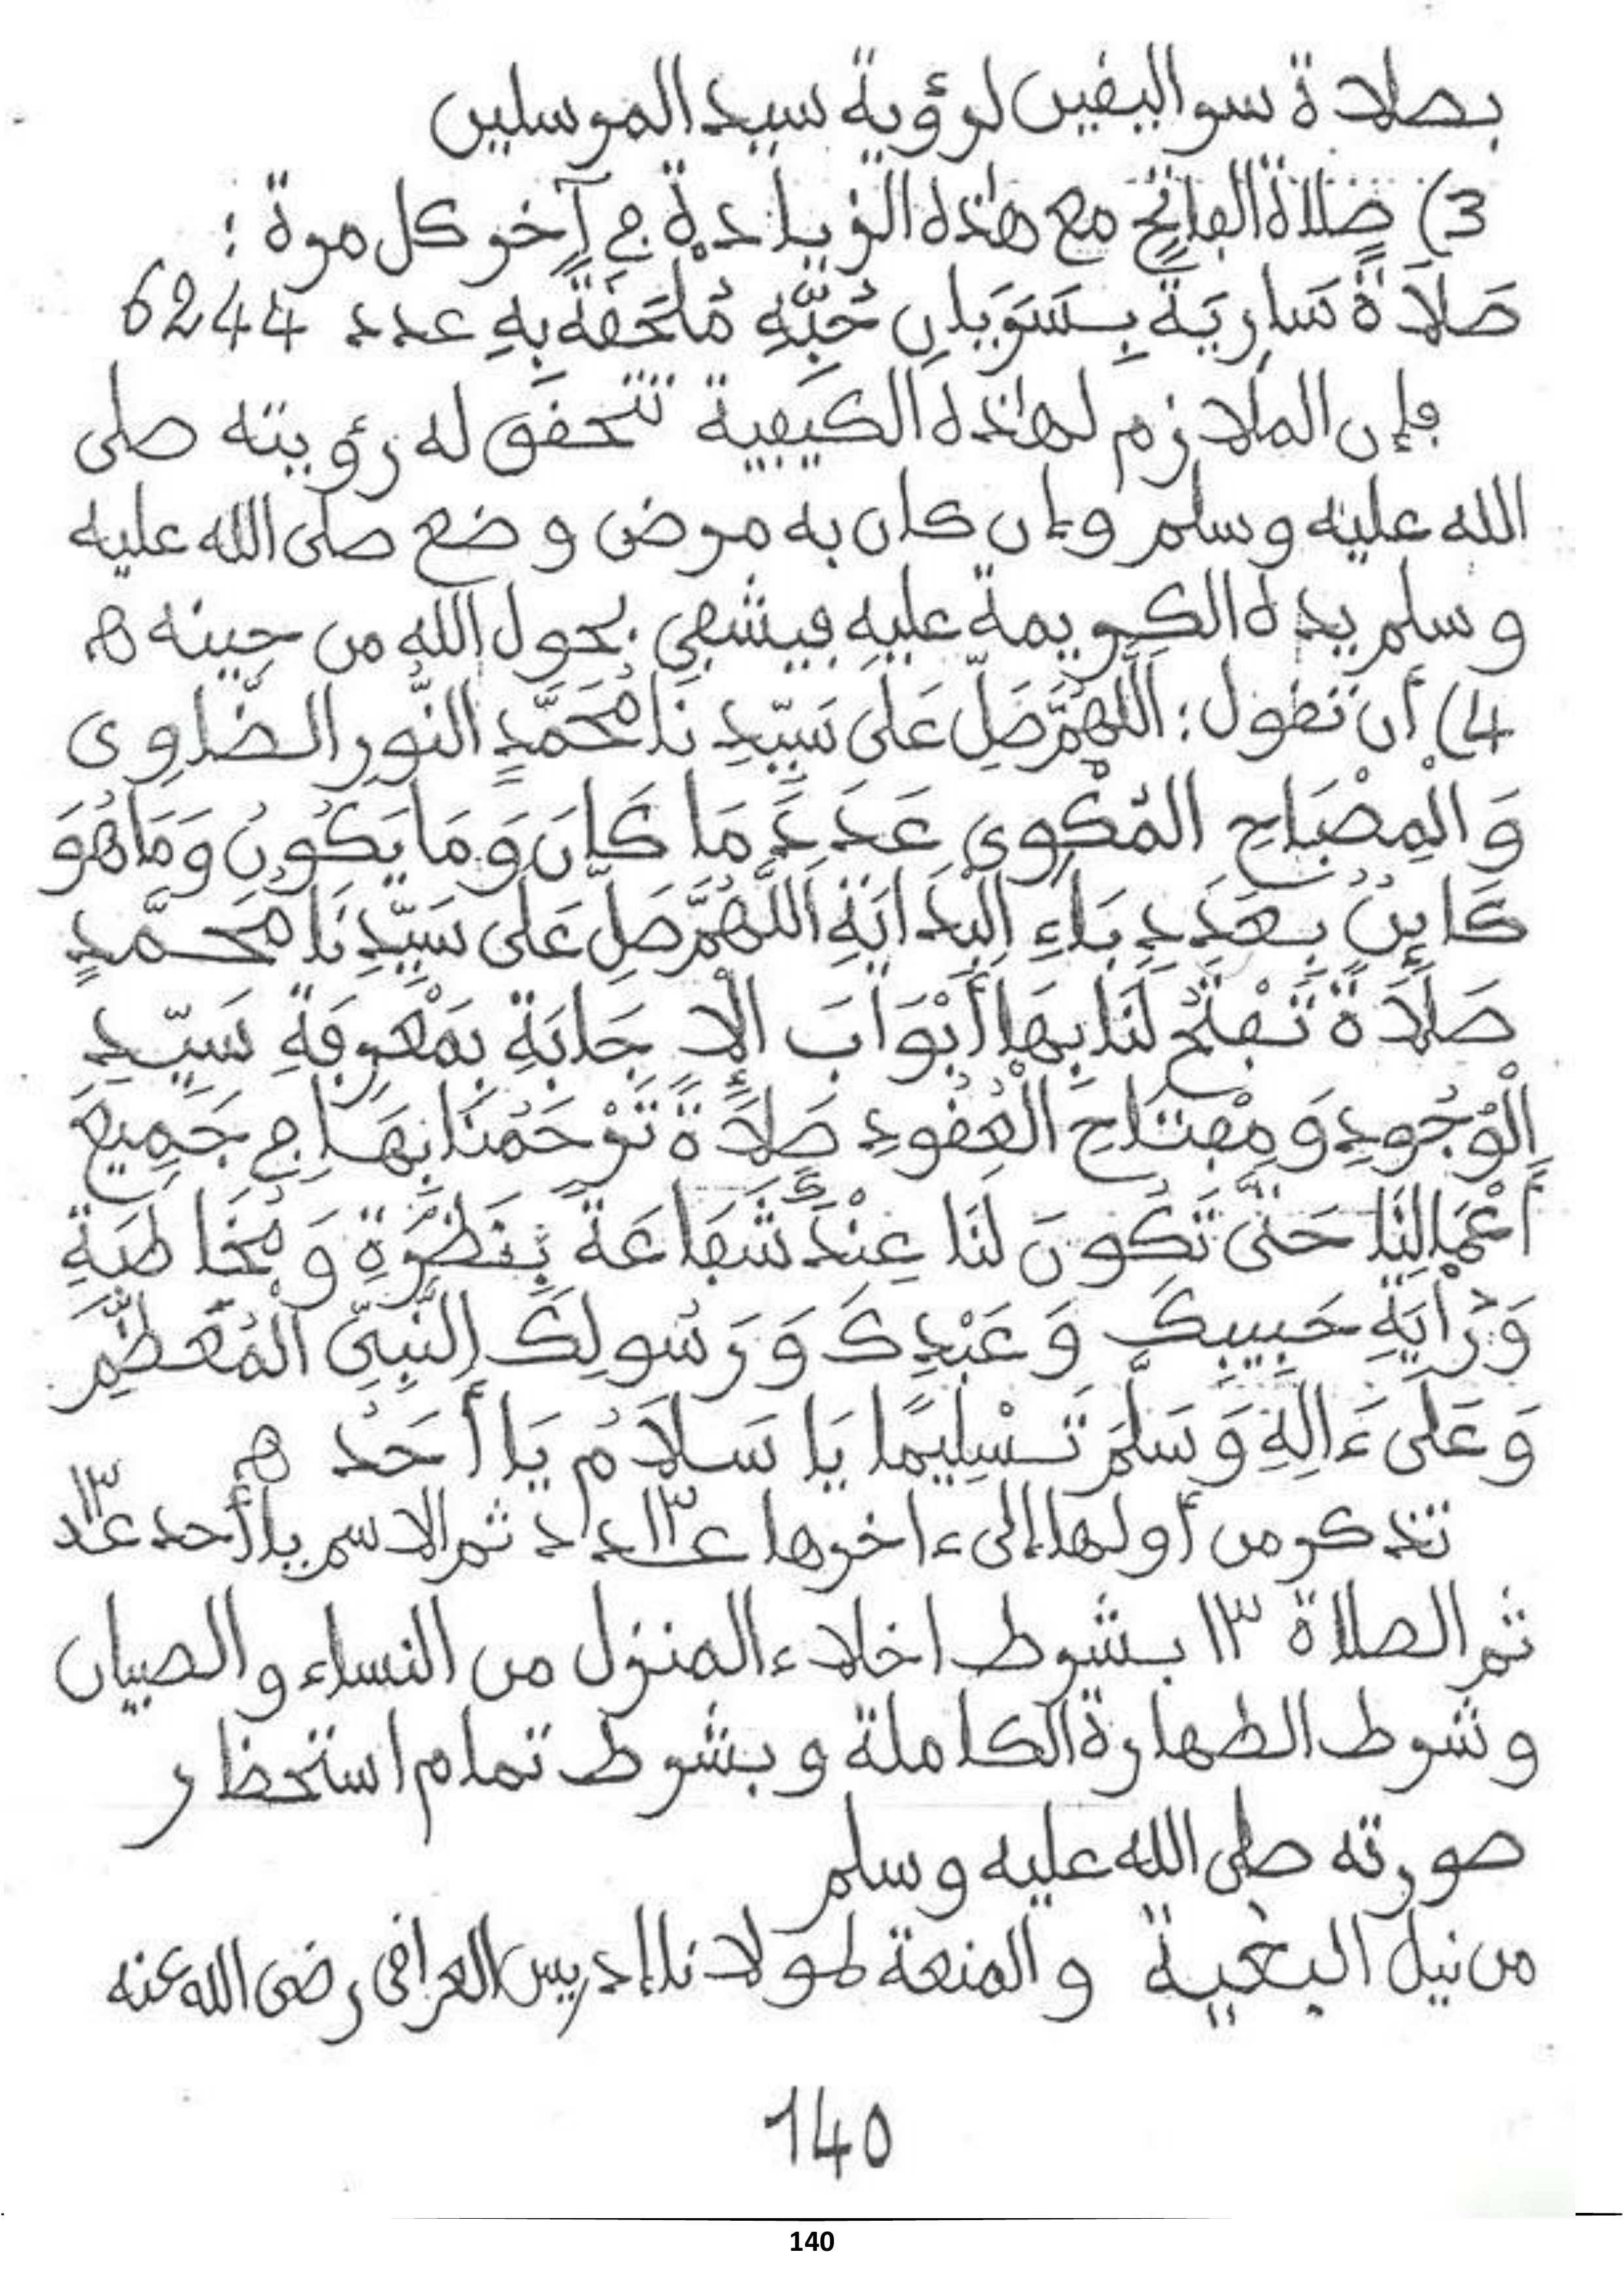 بصلاة سر اليقين لرؤية سيد المرسلين
3) صلاة الفاتح مع هذه الزيادة في آخر كل مرة :
صَلَاةً سَارِيَةً بِسَرَيَانِ حُبِّهِ مُلْحَقَةً بِهِ عدد 6244
فإن الملازم لهذه الكيفية تتحقق له رؤيته صلى
الله عليه وسلم وإن كان به مرض وضع صلى الله عليه
وسلم يده الكريمة عليه فيشفى بحول الله من حينه ه
4) أن تقول : اَللَّهُمَّ صَلِّ عَلَى سَيِّدِنَا مُحَمَّدٍ النُّورِ الضَّاوِى
وَالْمِصْبَاحِ الْمُكْوِى عَدَدَ مَا كَانَ وَمَا يَكُونُ وَمَا هُوَ
كَائِنٌ بِعَدَدِ بَاءِ الْبِدَايَةِ اَللَّهُمَّ صَلِّ عَلَى سَيِّدِنَا مُحَمَّدٍ
صَلَاةً تَفْتَحُ لَنَا بِهَا أَبْوَابَ الْإِجَابَةِ بِمَعْرِفَةِ سَيِّدِ
الْوُجُودِ وَمِفْتَاحِ الْعُقُودِ صَلَاةً تَرْحَمُنَا بِهَا فِي جَمِيعِ
أَعْمَالِنَا حَتَّى تَكُونَ لَنَا عِنْدَكَ شَفَاعَةً بِنَظْرَةٍ وَمُخَاطَبَةِ
وَرُأْيَةِ حَبِيبِكَ وَعَبْدِكَ وَرَسُولِكَ النَّبِىِّ الْمُعَظَّمِ
وَعَلَى ءَالِهِ وَسَلِّمْ تَسْلِيمًا يَا سَلَامُ يَا أَحَدُ ه
تذكر من أولها إلى ءاخرها ع١٣ـدد ثم الاسم يا أحد ع١٣ـدد
ثم الصلاة ١٣ بشرط اخلاء المنزل من النساء والصبيان
وشرط الطهارة الكاملة وبشرط تمام استحظار
صورته صلى الله عليه وسلم
من نيل البغية والمنعة لمولانا إدريس العراقى رضى الله عنه
140
140